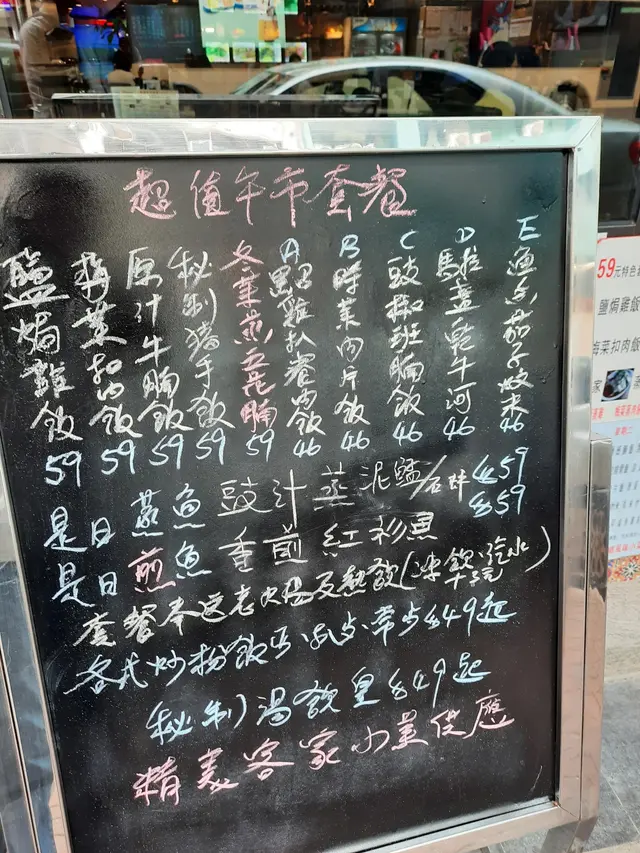 超值午市套餐
鹽焗雞飯 59
梅菜扣肉飯 59
原汁牛腩飯 59
秘制猪手飯 59
冬菜蒸五花腩 59
A
雞扒餐肉飯 46
B 時菜肉片飯 46
C 豉椒班腩飯 46
D 乾牛河 46
E 茄子炆米 46
是日蒸魚 豉汁蒸泥鯭/石 59
是日煎魚 香煎紅衫魚 59
套餐奉送老火湯及熱飲(冻飲汽水 元)
各式炒粉飯 49起
秘制湯飯皇 49起
精美客家小菜供應
59元特色
鹽焗雞飯
梅菜扣肉飯
家